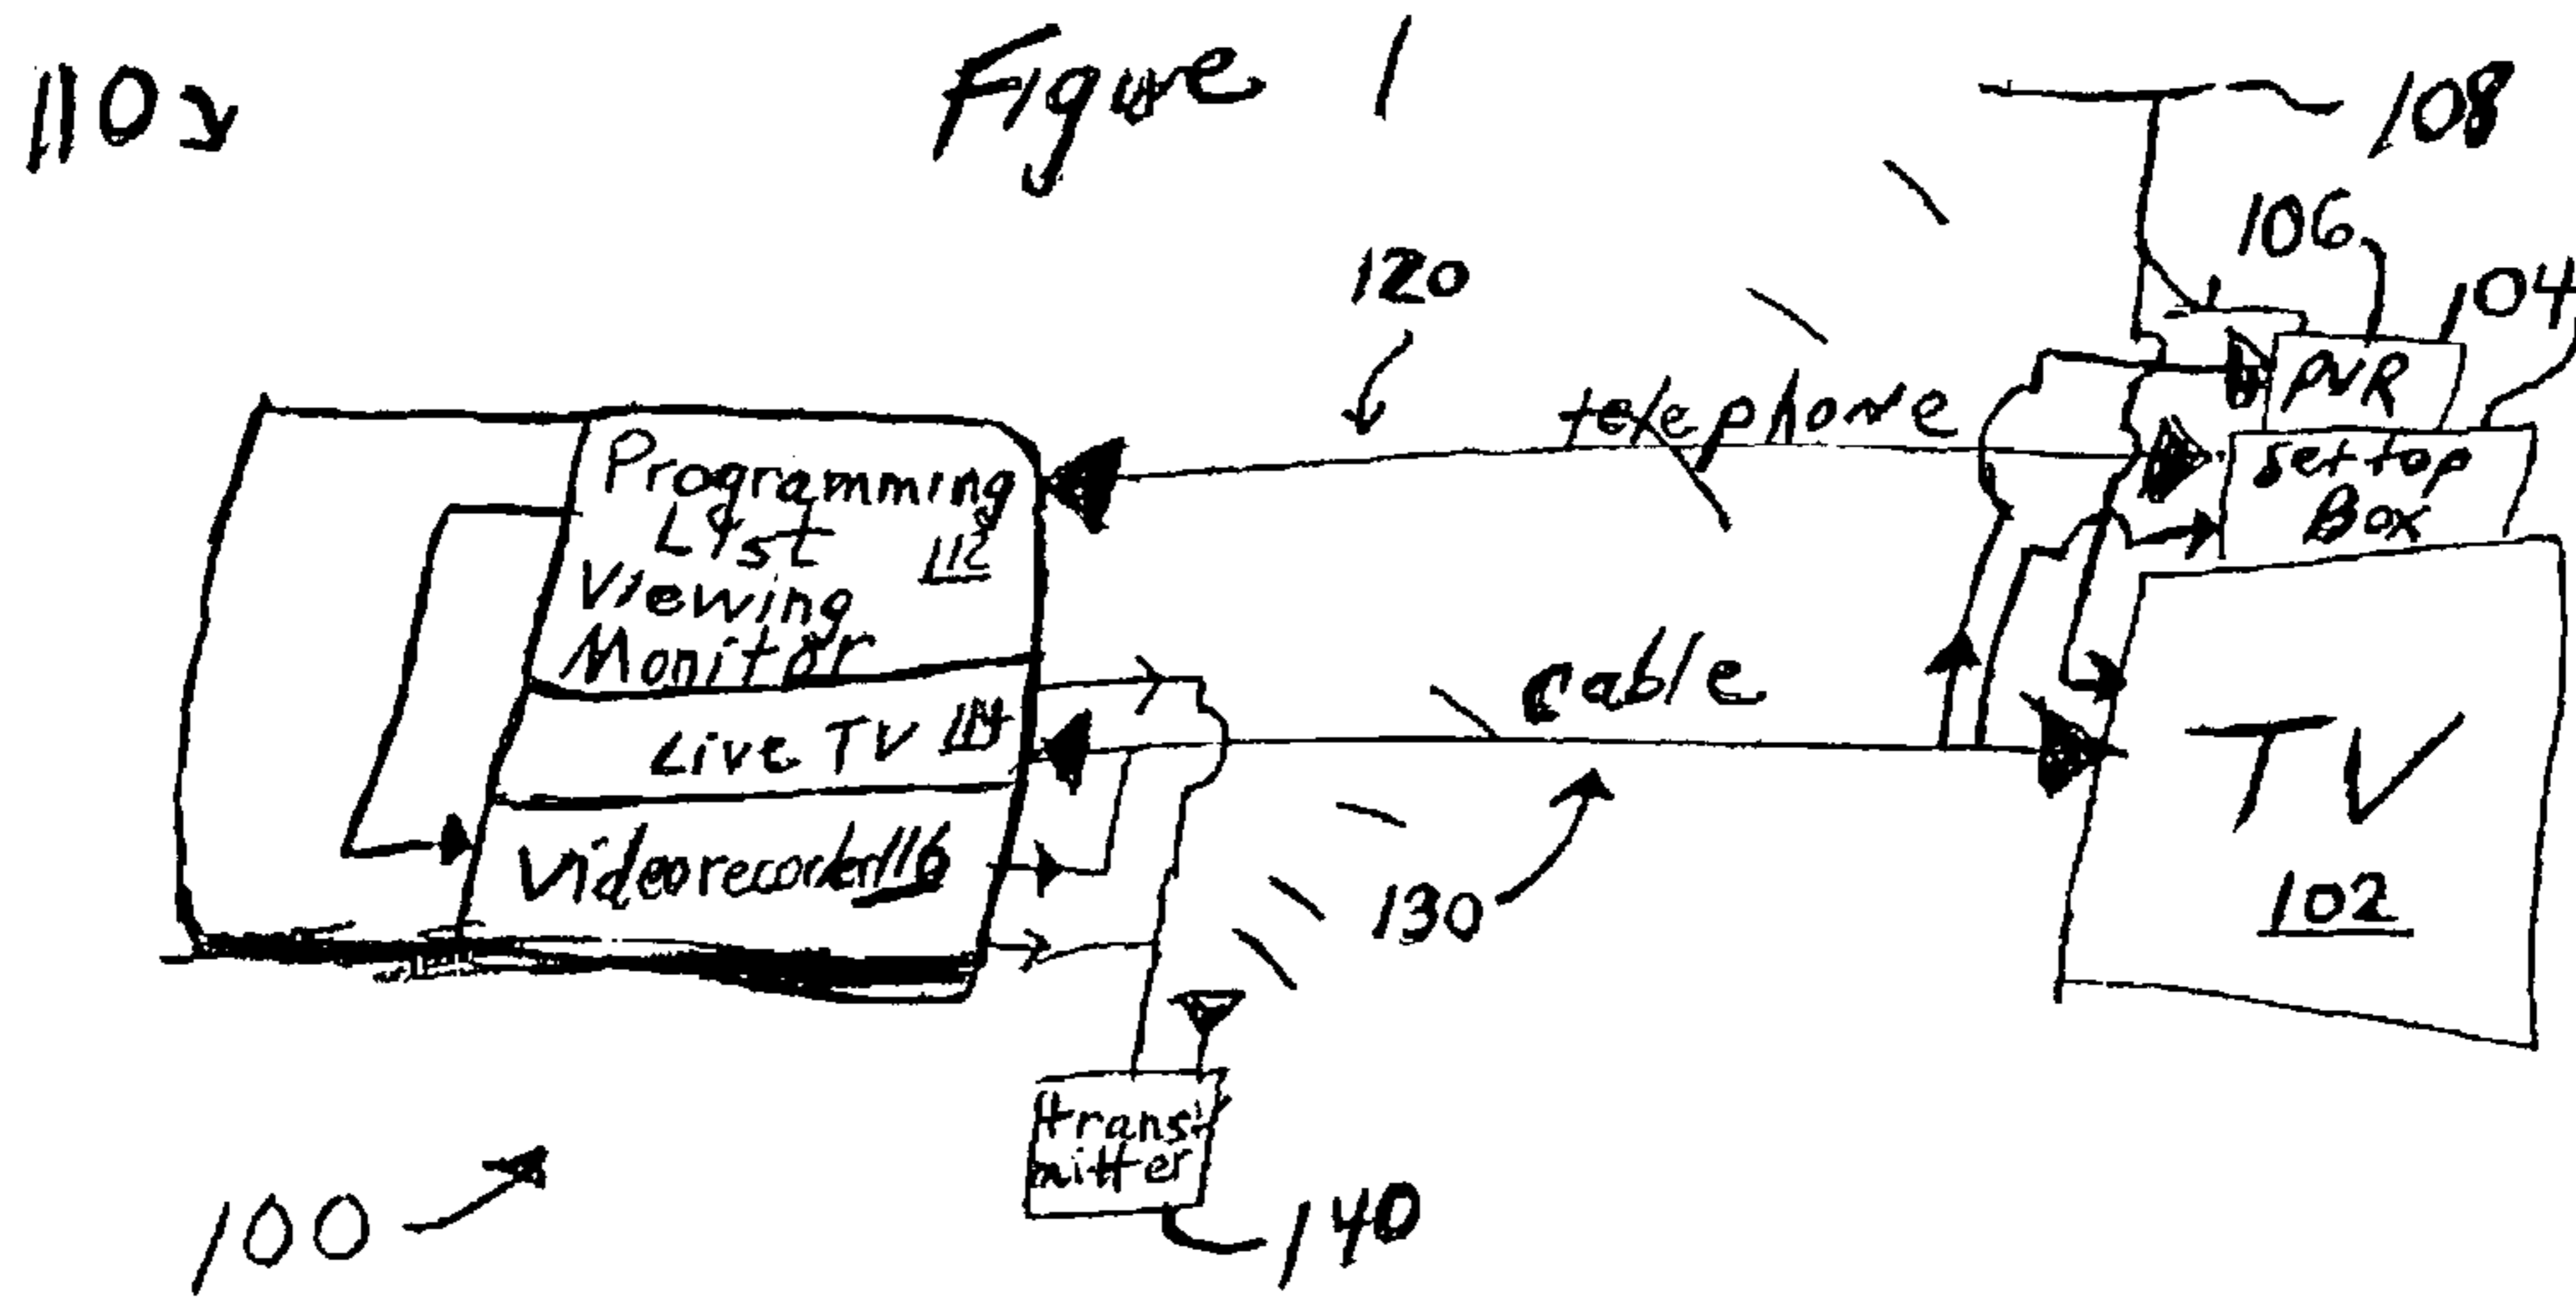 Figure 1
110
108
106
104
120
telephone
PVR
set top
Box
Programming
List
Viewing
Monitor
112
Live TV 114
Videorecorder 116
cable
130
TV
102
trans-
mitter
140
100